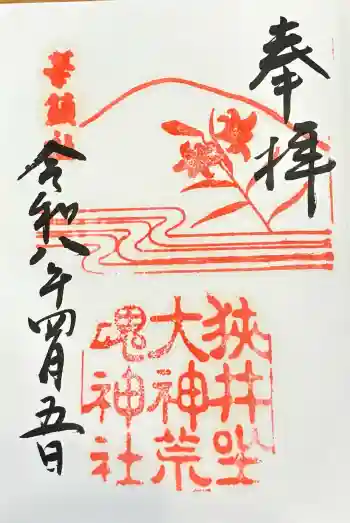 奉拝
狭井坐
大神荒
魂神社
華鎮社
令和八年四月五日